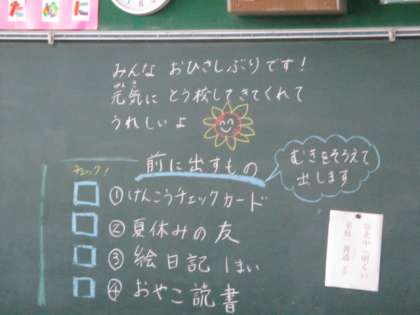 ために
みんな おひさしぶりです！
げんき
元気に とう校してきてくれて
うれしいよ
チェック！
前に出すもの
むきをそろえて
出します
①けんこうチェックカード
②夏休みの友
③絵日記 1まい
④おやこ読書